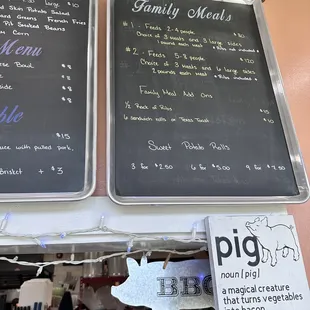 Red Skin Potato Salad
and Greens French Fries
Pit Smoked Beans
Corn
Menu
$8
$8
$8
$8
$15
with pulled pork,
Brisket + $3
Family Meals
#1 - Feeds 2-4 people
Choice of 3 meats and 3 large sides
1 pound each meat
#2 - Feeds 5-8 people $120
Choice of 3 meats and 6 large sides
2 pounds each meat
Family Meal Add Ons
1/2 Rack of Ribs $15
6 sandwich rolls or Texas Toast $10
Sweet Potato Rolls
3 For $2.50 6 For $5.00 9 For $7.50
BBQ
pig
noun [pig]
a magical creature
that turns vegetables
into bacon